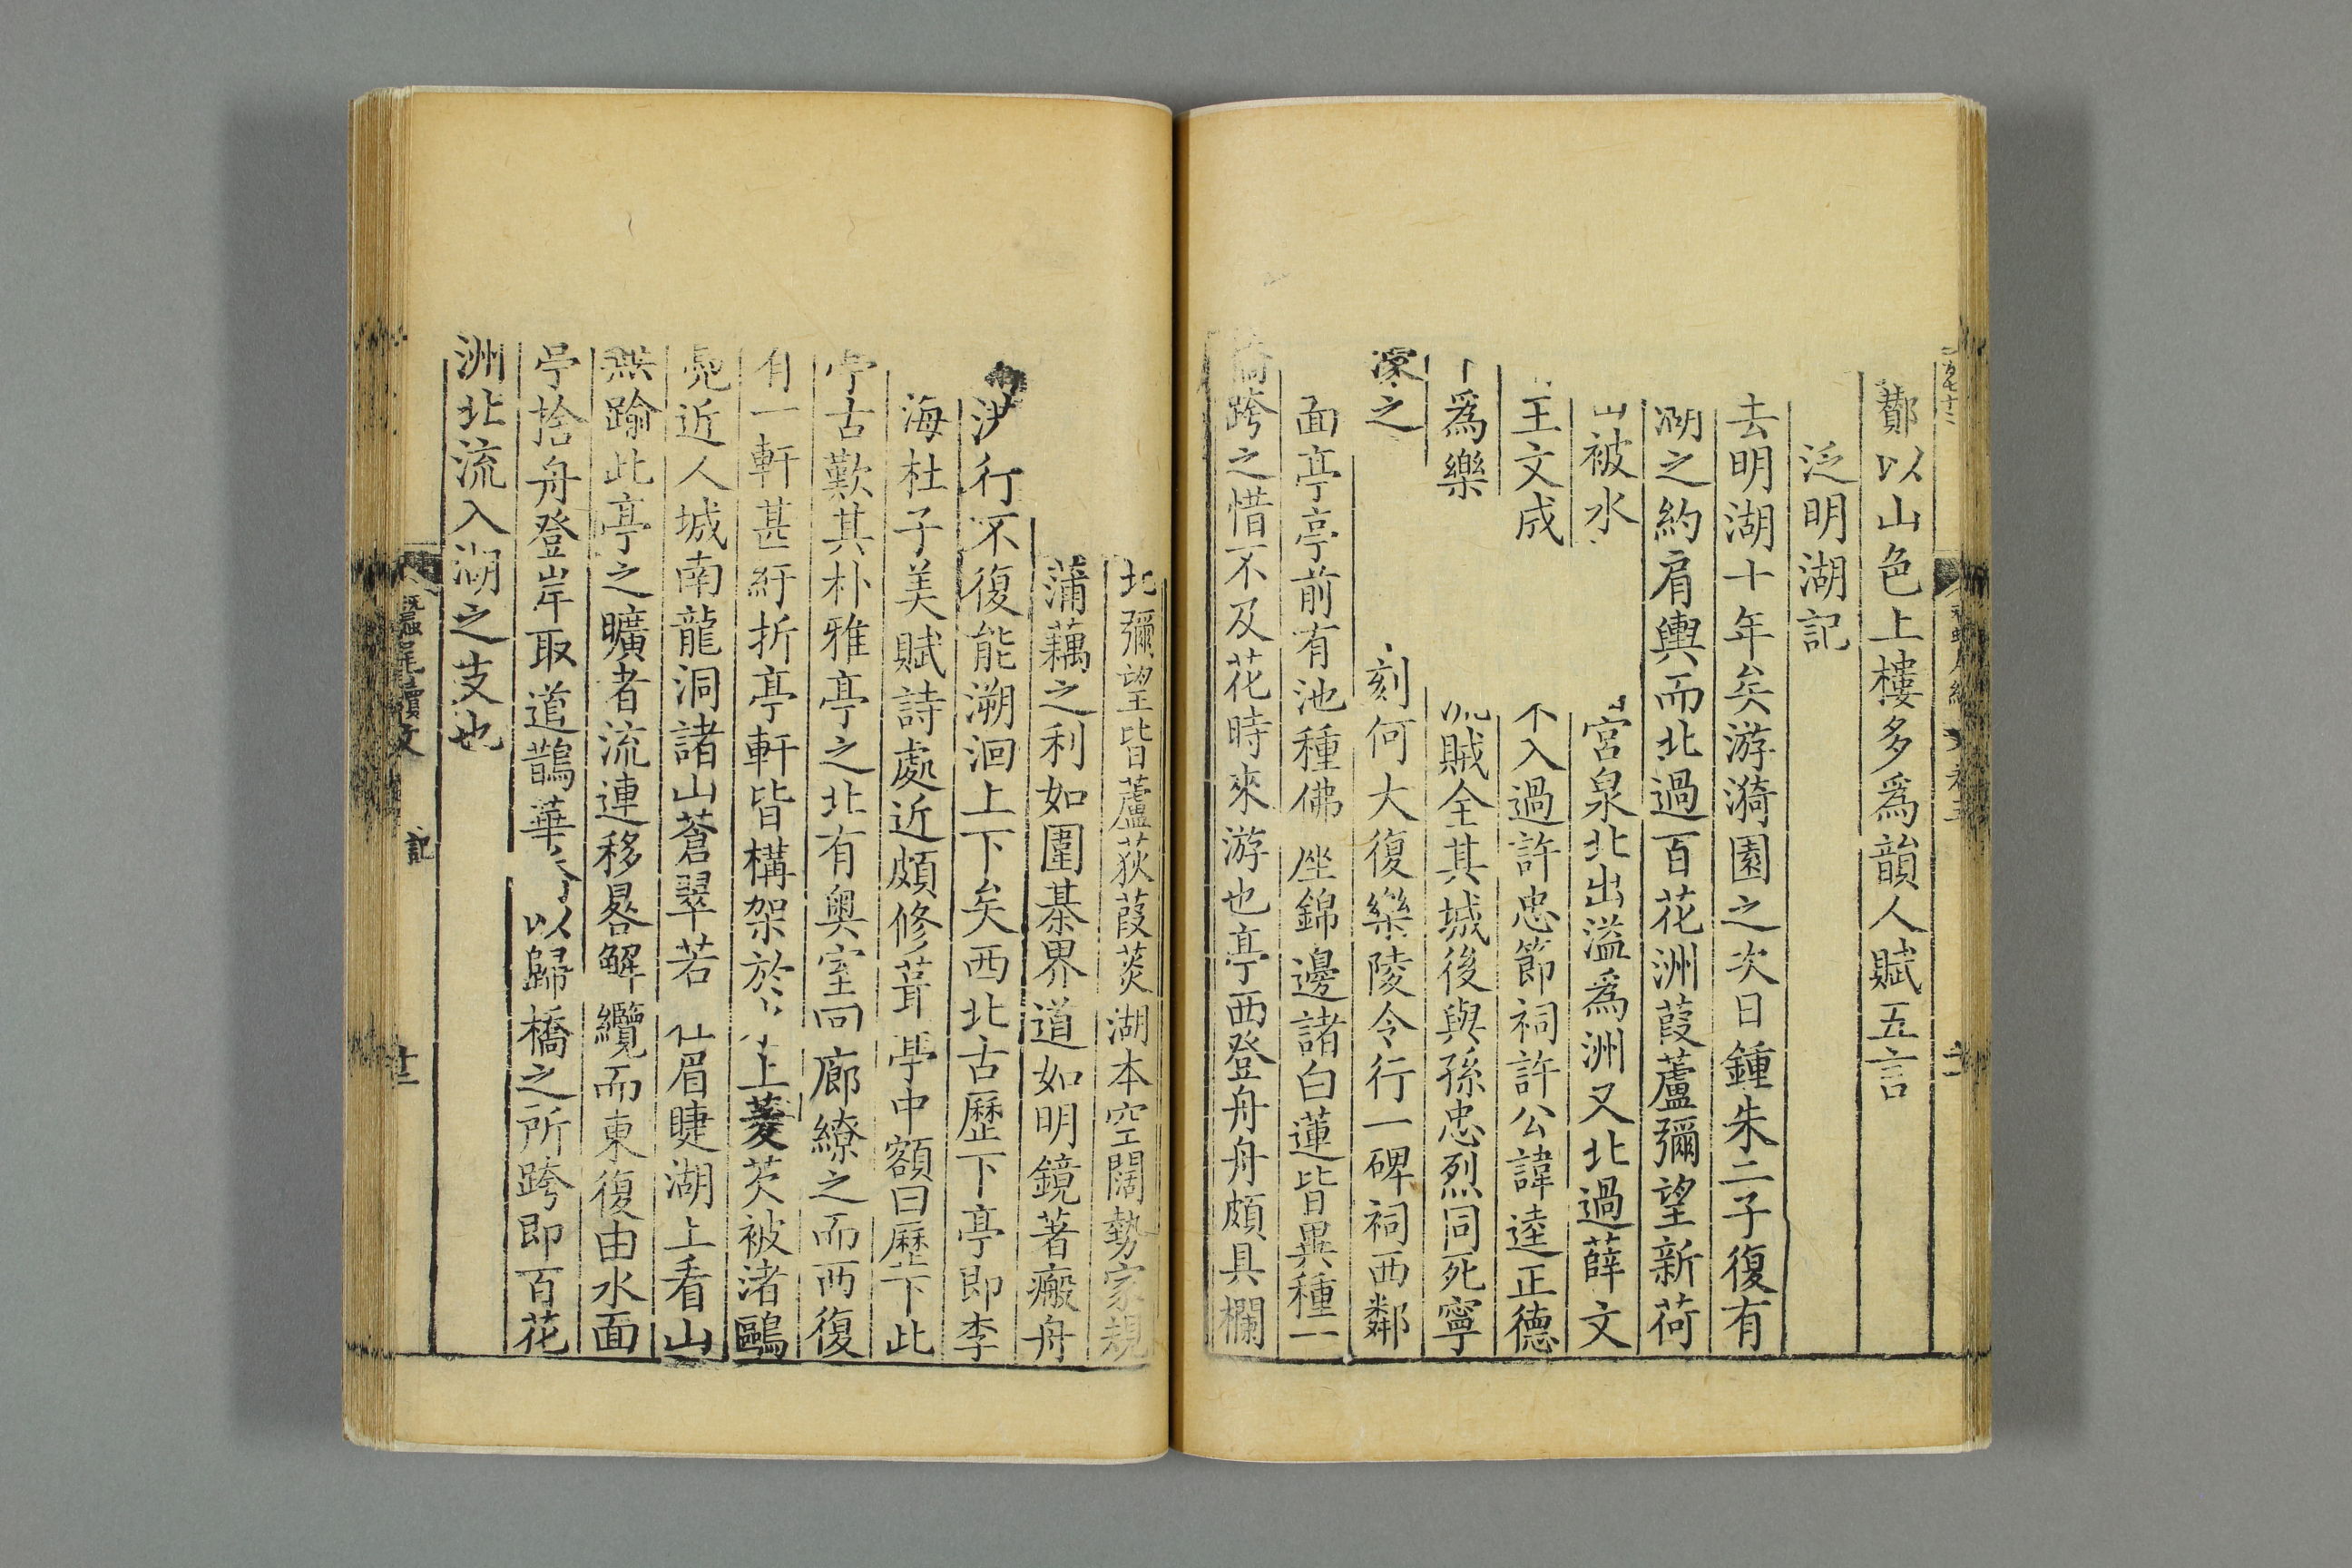 酇以山色上樓多爲韻人賦五言
泛明湖記
去明湖十年矣游漪園之次日鍾朱二子復有
湖之約肩輿而北過百花洲葭蘆彌望新荷
被水
宮泉北出溢爲洲又北過薛文
王文成
不入過許忠節祠許公諱逵正德
爲樂
賊全其城後與孫忠烈同死寧
濠之
刻何大復樂陵令行一碑祠西鄰
面亭亭前有池種佛座錦邊諸白蓮皆異種一
橋跨之惜不及花時來游也亭西登舟舟頗具欄
北彌望皆蘆荻葭菼湖本空闊勢家規
蒲藕之利如圍棊界道如明鏡著瘢舟
行不復能溯洄上下矣西北古歷下亭即李
海杜子美賦詩處近頗修葺亭中額曰歷下此
亭古歎其朴雅亭之北有奧室回廊繚之而西復
有一軒甚紆折亭軒皆構架於
上菱芡被渚鷗
近人城南龍洞諸山蒼翠若
眉睫湖上看山
無踰此亭之曠者流連移晷解纜而東復由水面
亭捨舟登岸取道鵲華
以歸橋之所跨即百花
洲北流入湖之支也
蠶尾續文
記